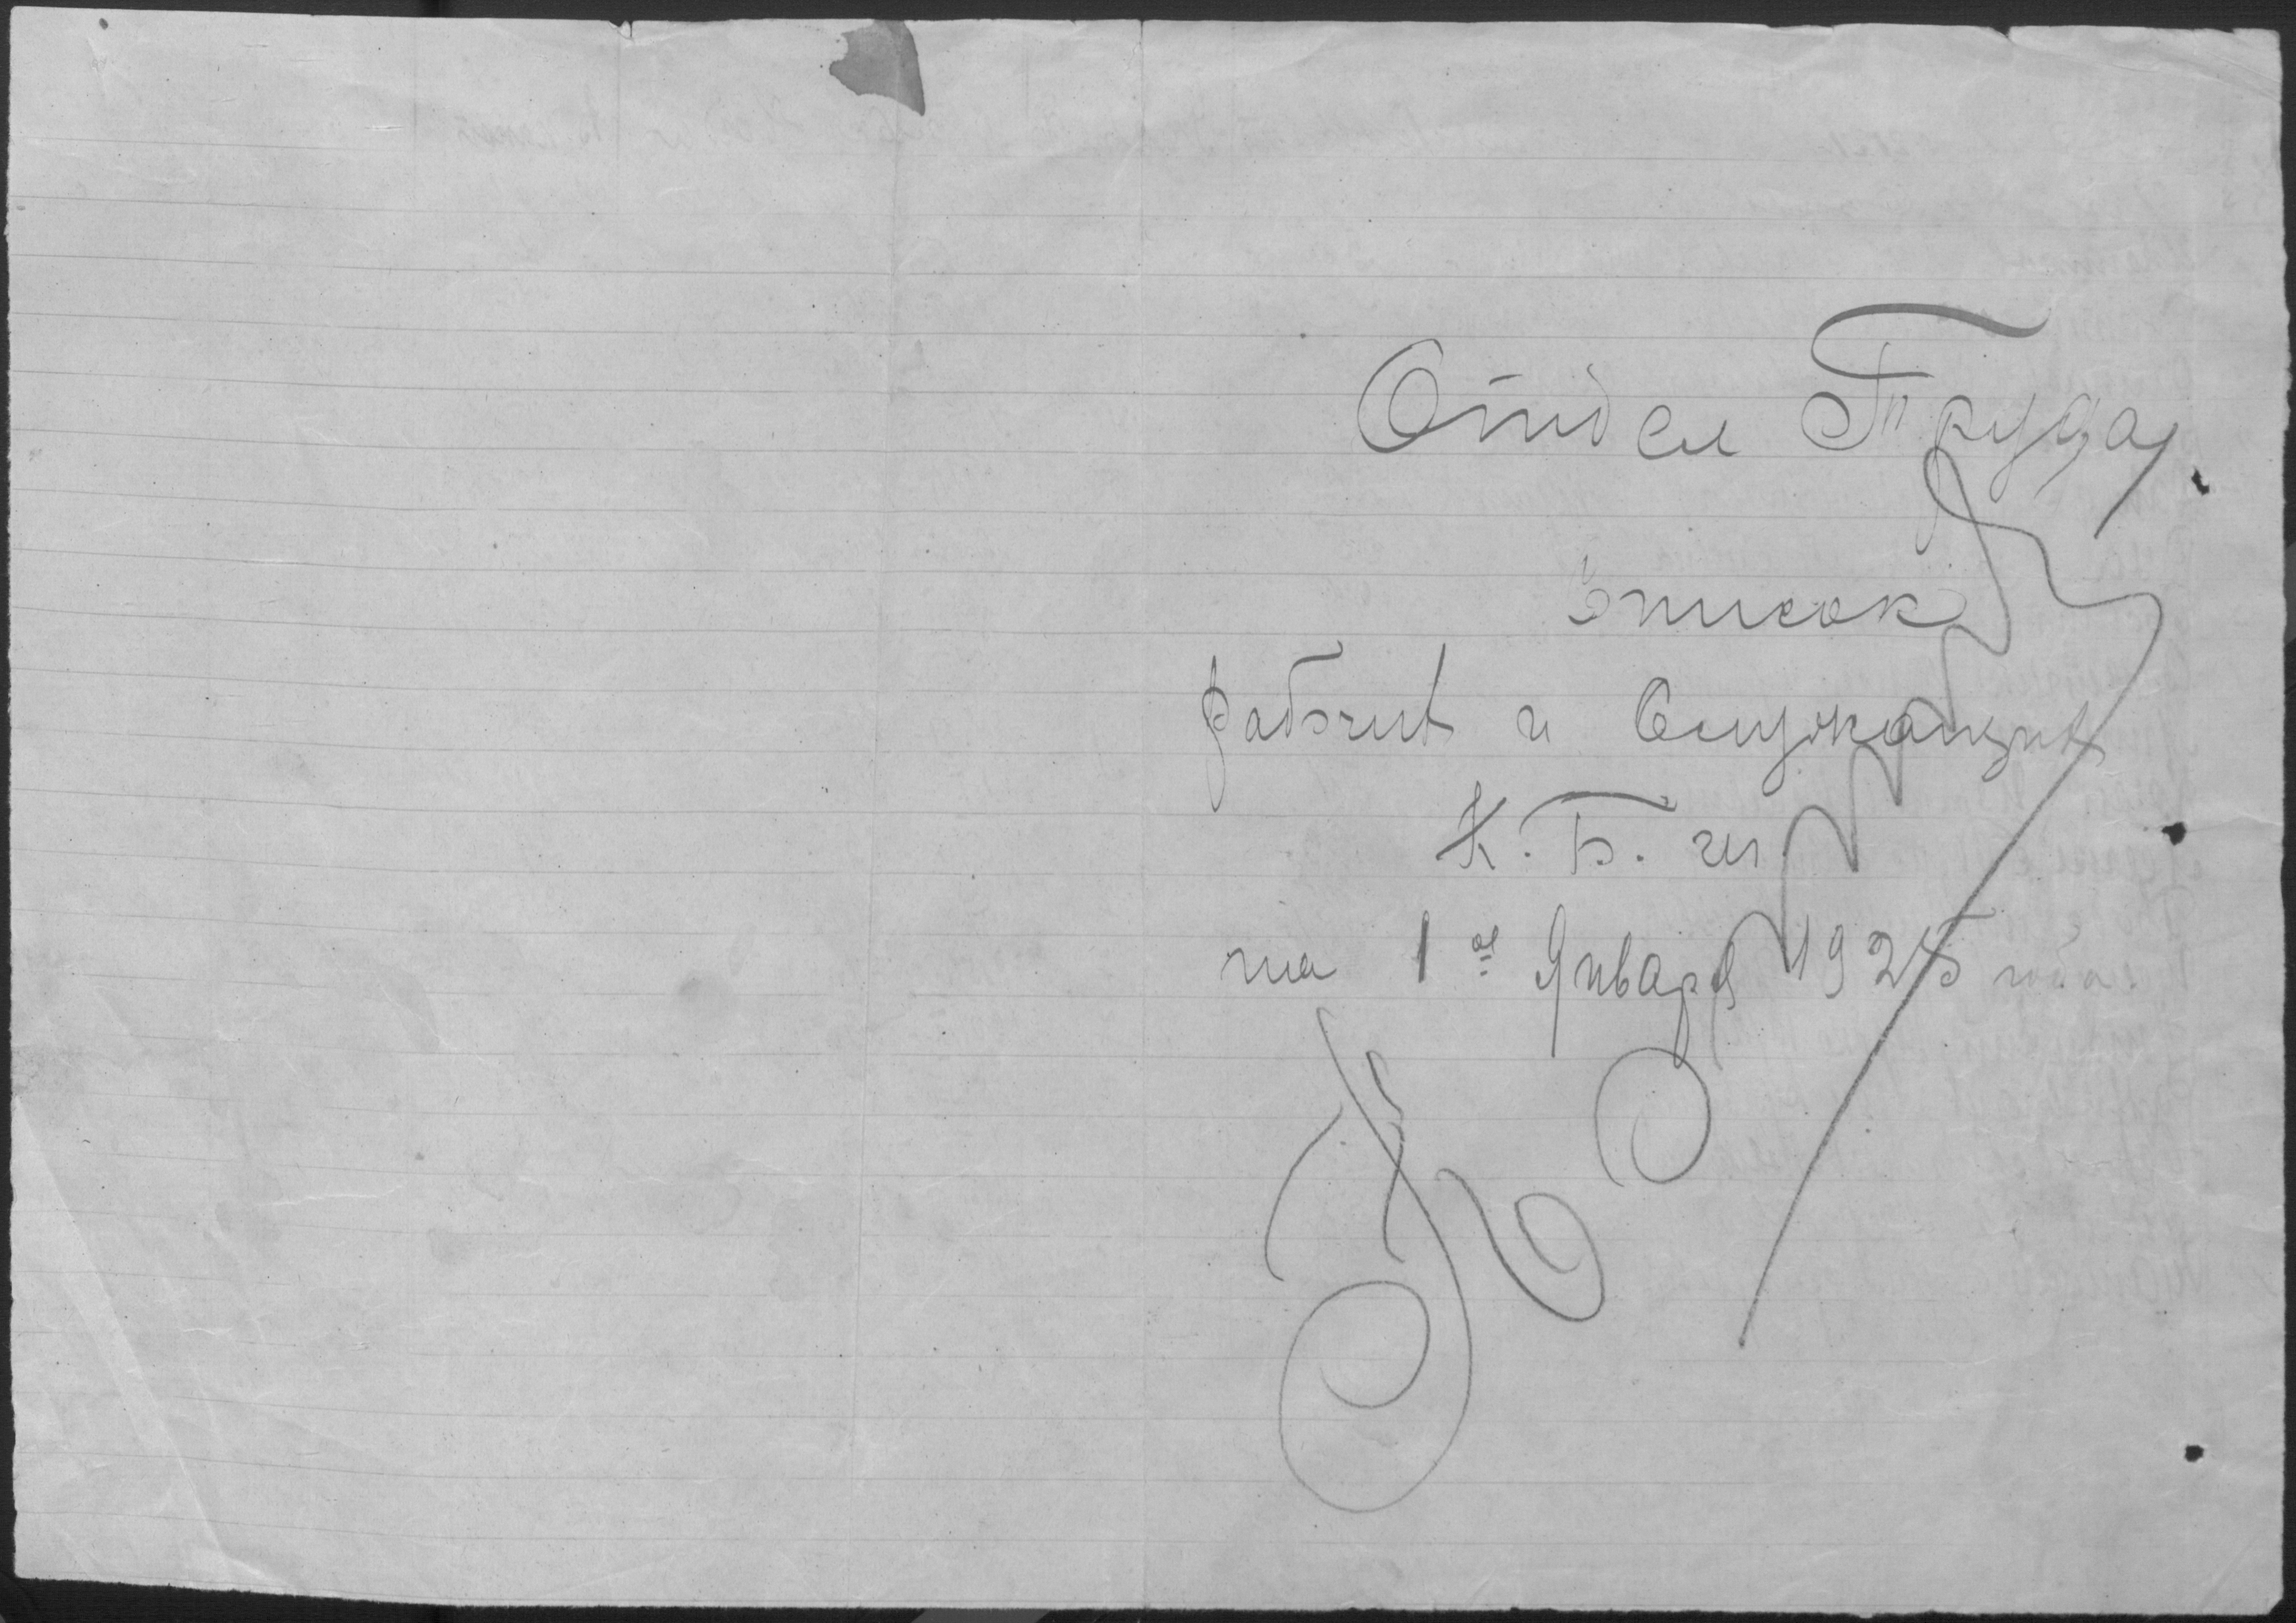 Отдел Труда
Список
Рабочих и Служащих
К. Б.
на 1ое Января 1925 года.